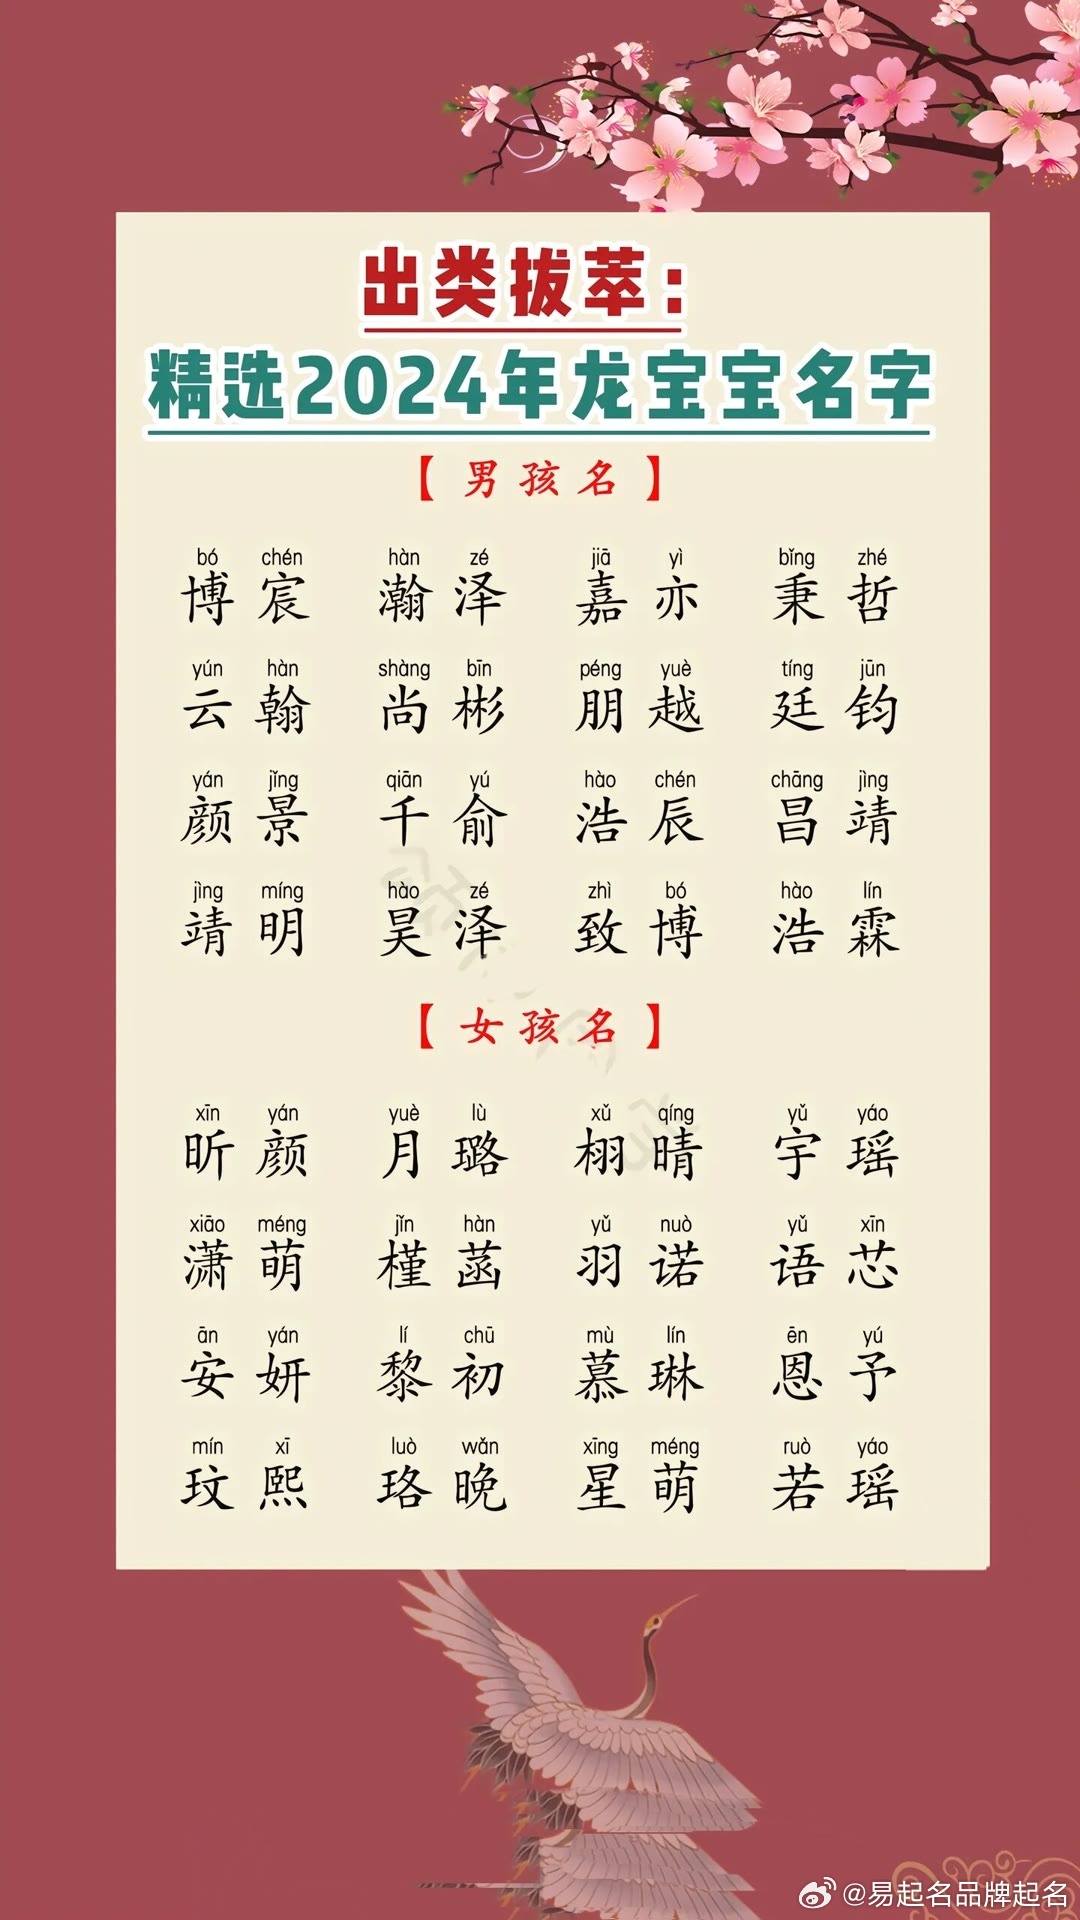 出类拔萃：
精选2024年龙宝宝名字
【男孩名】
bó chén hàn zé jiā yì bǐng zhé
博宸 瀚泽 嘉亦 秉哲
yún hàn shàng bīn péng yuè tíng jūn
云翰 尚彬 朋越 廷钧
yán jǐng qiān yú hào chén chāng jìng
颜景 千俞 浩辰 昌靖
jìng míng hào zé zhì bó hào lín
靖明 昊泽 致博 浩霖
【女孩名】
xīn yán yuè lù xǔ qíng yǔ yáo
昕颜 月璐 栩晴 宇瑶
xiāo méng jǐn hàn yǔ nuò yǔ xīn
潇萌 槿菡 羽诺 语芯
ān yán lí chū mù lín ēn yú
安妍 黎初 慕琳 恩予
mín xī luò wǎn xīng méng ruò yáo
玟熙 珞晚 星萌 若瑶
@易起名品牌起名